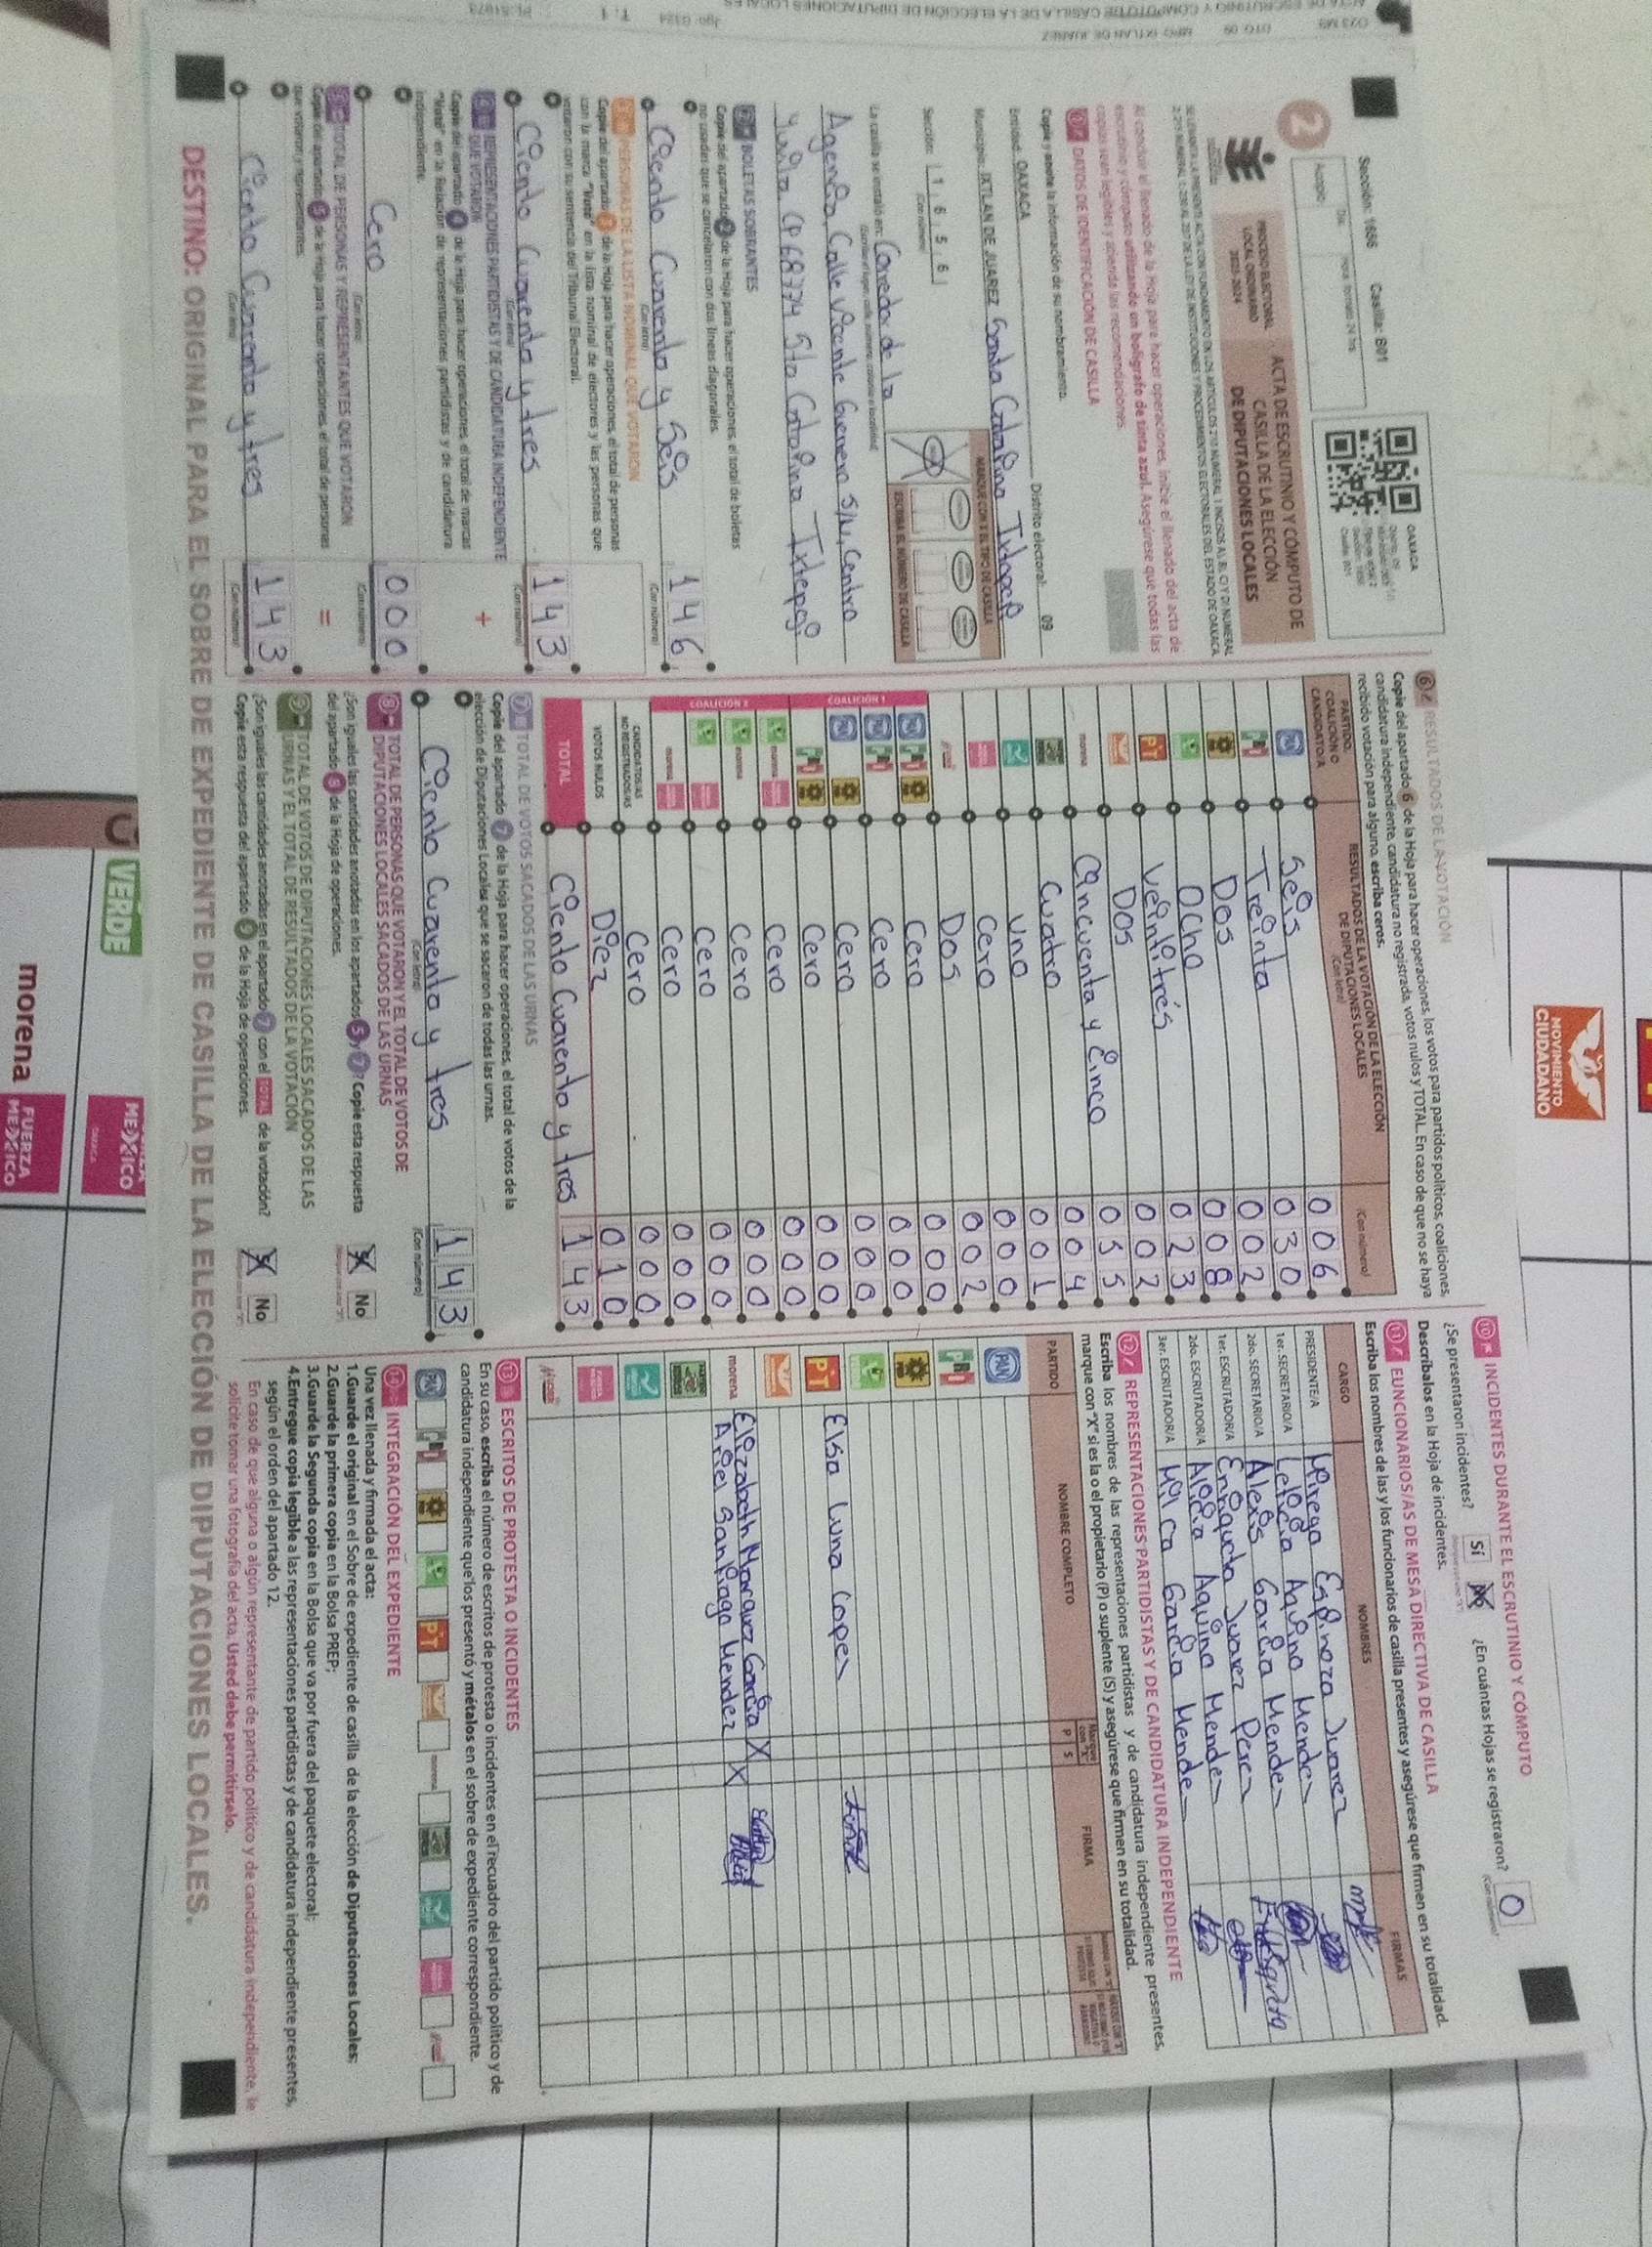 Sección: 1656 Casilla: B01
OAXACA
2
PROCESO ELECTORAL
LOCAL ORDINARIO
2023-2024
ACTA DE ESCRUTINIO Y CÓMPUTO DE
CASILLA DE LA ELECCIÓN
DE DIPUTACIONES LOCALES
Al concluir el llenado de la Hoja para hacer operaciones, inicie el llenado del acta de
escrutinio y cómputo utilizando un bolígrafo de tinta azul. Asegúrese que todas las
copias sean legibles y atienda las recomendaciones.
1 DATOS DE IDENTIFICACIÓN DE CASILLA
Copie y anote la información de su nombramiento.
Entidad: OAXACA Distrito electoral: 09
Municipio: IXTLAN DE JUAREZ Santa Catalina Ixtepeji
Sección: 1 6 5 6
(Con número)
MARQUE CON X EL TIPO DE CASILLA
ESCRIBA EL NÚMERO DE CASILLA
La casilla se instaló en: Corredor de la
Agencia, Calle Vicente Guerrero S/N, Centro
Yuvila CP 68774 Sta Catalina Ixtepeji
2 BOLETAS SOBRANTES
Copie del apartado 2 de la Hoja para hacer operaciones, el total de boletas
no usadas que se cancelaron con dos líneas diagonales.
Ciento Cuarenta y Seis 146
(Con letra) (Con número)
3 PERSONAS DE LA LISTA NOMINAL QUE VOTARON
Copie del apartado 3 de la Hoja para hacer operaciones, el total de personas
con la marca "Votó" en la lista nominal de electores y las personas que
votaron con su sentencia del Tribunal Electoral.
Ciento Cuarenta y tres 143
(Con letra) (Con número)
4 REPRESENTACIONES PARTIDISTAS Y DE CANDIDATURA INDEPENDIENTE
QUE VOTARON +
Copie del apartado 4 de la Hoja para hacer operaciones el total de marcas
"Votó" en la Relación de representaciones partidistas y de candidatura
independiente.
Cero 000
(Con letra) (Con número)
5 TOTAL DE PERSONAS Y REPRESENTANTES QUE VOTARON
Copie del apartado 5 de la Hoja para hacer operaciones, el total de personas =
que votaron y representantes.
Ciento Cuarenta y tres 143
(Con letra) (Con número)
6 RESULTADOS DE LA VOTACIÓN
Copie del apartado 6 de la Hoja para hacer operaciones, los votos para partidos políticos, coaliciones,
candidatura independiente, candidatura no registrada, votos nulos y TOTAL. En caso de que no se haya
recibido votación para alguno, escriba ceros.
PARTIDO,
COALICIÓN O
CANDIDATO/A
RESULTADOS DE LA VOTACIÓN DE LA ELECCIÓN
DE DIPUTACIONES LOCALES
(Con letra) (Con número)
PAN Seis 006
PRI Treinta 030
PRD Dos 002
Ocho 008
PT Veintitrés 023
Dos 002
morena Cincuenta y Cinco 055
Cuatro 004
Uno 001
Cero 000
Dos 002
COALICIÓN 1
Cero 000
Cero 000
Cero 000
Cero 000
COALICIÓN 2
Cero 000
Cero 000
Cero 000
Cero 000
CANDIDATOS/AS
NO REGISTRADOS/AS Cero 000
VOTOS NULOS Diez 010
TOTAL Ciento Cuarenta y tres 143
7 TOTAL DE VOTOS SACADOS DE LAS URNAS
Copie del apartado 7 de la Hoja para hacer operaciones, el total de votos de la
elección de Diputaciones Locales que se sacaron de todas las urnas.
Ciento Cuarenta y tres 143
(Con letra) (Con número)
8 TOTAL DE PERSONAS QUE VOTARON Y EL TOTAL DE VOTOS DE
DIPUTACIONES LOCALES SACADOS DE LAS URNAS
¿Son iguales las cantidades anotadas en los apartados 5 y 7? Copie esta respuesta
del apartado 8 de la Hoja de operaciones. No
9 TOTAL DE VOTOS DE DIPUTACIONES LOCALES SACADOS DE LAS
URNAS Y EL TOTAL DE RESULTADOS DE LA VOTACIÓN
¿Son iguales las cantidades anotadas en el apartado 7 con el TOTAL de la votación?
Copie esta respuesta del apartado 9 de la Hoja de operaciones. No
10 INCIDENTES DURANTE EL ESCRUTINIO Y CÓMPUTO
¿Se presentaron incidentes? Sí ¿En cuántas Hojas se registraron? 0
Descríbalos en la Hoja de incidentes.
11 FUNCIONARIOS/AS DE MESA DIRECTIVA DE CASILLA
Escriba los nombres de las y los funcionarios de casilla presentes y asegúrese que firmen en su totalidad.
CARGO NOMBRES FIRMAS
PRESIDENTE/A Mireya Espinoza Juarez
1er. SECRETARIO/A Leticia Aquino Mendez
2do. SECRETARIO/A Alexis Garcia Mendez
1er. ESCRUTADOR/A Enriqueta Juarez Perez
2do. ESCRUTADOR/A Alicia Aquino Mendez
3er. ESCRUTADOR/A Mirca Garcia Mendez
12 REPRESENTACIONES PARTIDISTAS Y DE CANDIDATURA INDEPENDIENTE
Escriba los nombres de las representaciones partidistas y de candidatura independiente presentes,
marque con "X" si es la o el propietario (P) o suplente (S) y asegúrese que firmen en su totalidad.
PARTIDO NOMBRE COMPLETO P S FIRMA
PAN
PRI
PRD
PT Elsa Luna Lopez
morena Elizabeth Marquez Garcia X
Ariel Santiago Mendez X
13 ESCRITOS DE PROTESTA O INCIDENTES
En su caso, escriba el número de escritos de protesta o incidentes en el recuadro del partido político y de
candidatura independiente que los presentó y métalos en el sobre de expediente correspondiente.
PAN PRI PRD PT morena
14 INTEGRACIÓN DEL EXPEDIENTE
Una vez llenada y firmada el acta:
1.Guarde el original en el Sobre de expediente de casilla de la elección de Diputaciones Locales;
2.Guarde la primera copia en la Bolsa PREP;
3.Guarde la Segunda copia en la Bolsa que va por fuera del paquete electoral;
4.Entregue copia legible a las representaciones partidistas y de candidatura independiente presentes,
según el orden del apartado 12.
En caso de que alguna o algún representante de partido político y de candidatura independiente, le
solicite tomar una fotografía del acta, Usted debe permitírselo.
DESTINO: ORIGINAL PARA EL SOBRE DE EXPEDIENTE DE CASILLA DE LA ELECCIÓN DE DIPUTACIONES LOCALES.
MOVIMIENTO
CIUDADANO
VERDE
MEXICO
morena
FUERZA
MEXICO